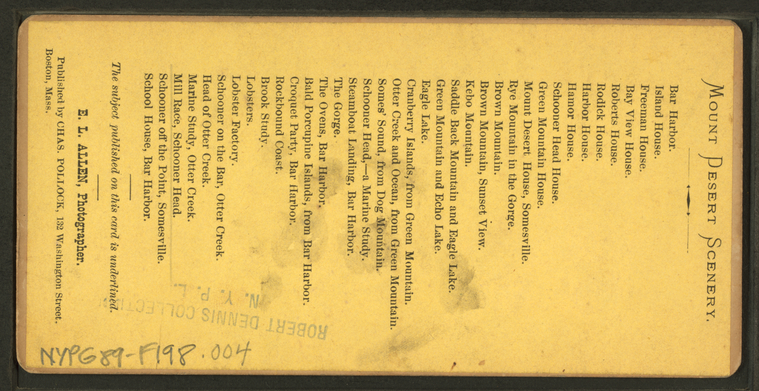 MOUNT DESERT SCENERY.
Bar Harbor.
Island House.
Freeman House.
Bay View House.
Roberts House.
Rodick House.
Harbor House.
Hamor House.
Schooner Head House.
Green Mountain House.
Mount Desert House, Somesville.
Rye Mountain in the Gorge.
Brown Mountain.
Brown Mountain, Sunset View.
Kebo Mountain.
Saddle Back Mountain and Eagle Lake.
Green Mountain and Echo Lake.
Eagle Lake.
Cranberry Islands, from Green Mountain.
Otter Creek and Ocean, from Green Mountain.
Somes' Sound, from Dog Mountain.
Schooner Head,—a Marine Study.
Steamboat Landing, Bar Harbor.
The Gorge.
The Ovens, Bar Harbor.
Bald Porcupine Islands, from Bar Harbor.
Croquet Party, Bar Harbor.
Rockbound Coast.
Brook Study.
Lobsters.
Lobster Factory.
Schooner on the Bar, Otter Creek.
Head of Otter Creek.
Marine Study, Otter Creek.
Mill Race, Schooner Head.
Schooner off the Point, Somesville.
School House, Bar Harbor.
The subject published on this card is underlined.
E. L. ALLEN, Photographer.
Published by CHAS. POLLOCK, 132 Washington Street,
Boston, Mass.
ROBERT DENNIS COLLECTION
N. Y. P. L.
NYPG89-F198.004